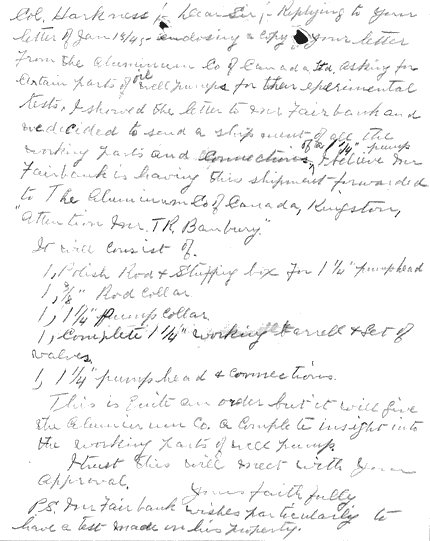 Col, Harkness! Dear Sir; - Replying to your
letter of Jan 18/45 - enclosing a copy your letter
From the Aluminum Co of Canada Ltd, asking for
Certain parts of oil well pumps for their experimental
tests, I showed the letter to Mr Fairbank and
we decided to send a shipment of all the
working parts and connections of a 1 1/4" pump, I believe Mr
Fairbank is having this shipment forwarded
to The Aluminum Co of Canada, Kingston,
"Attention Mr. T.R. Banbury."
It will consist of.
1, Polish Rod & Stuffing box for 1 1/4" pumphead
1, 3/8" Rod Collar
1, 1 1/4" Pump Collar
1, Complete 1 1/4" working barrell & Set of
valves,
1, 1 1/4" pumphead & connections.
This is quite an order but it will give
the Aluminum Co. a complete insight into
the working parts of well pump.
I trust this will meet with your
approval.
Yours faithfully
P.S. Mr Fairbank wishes particularly to
have a test made on his property.